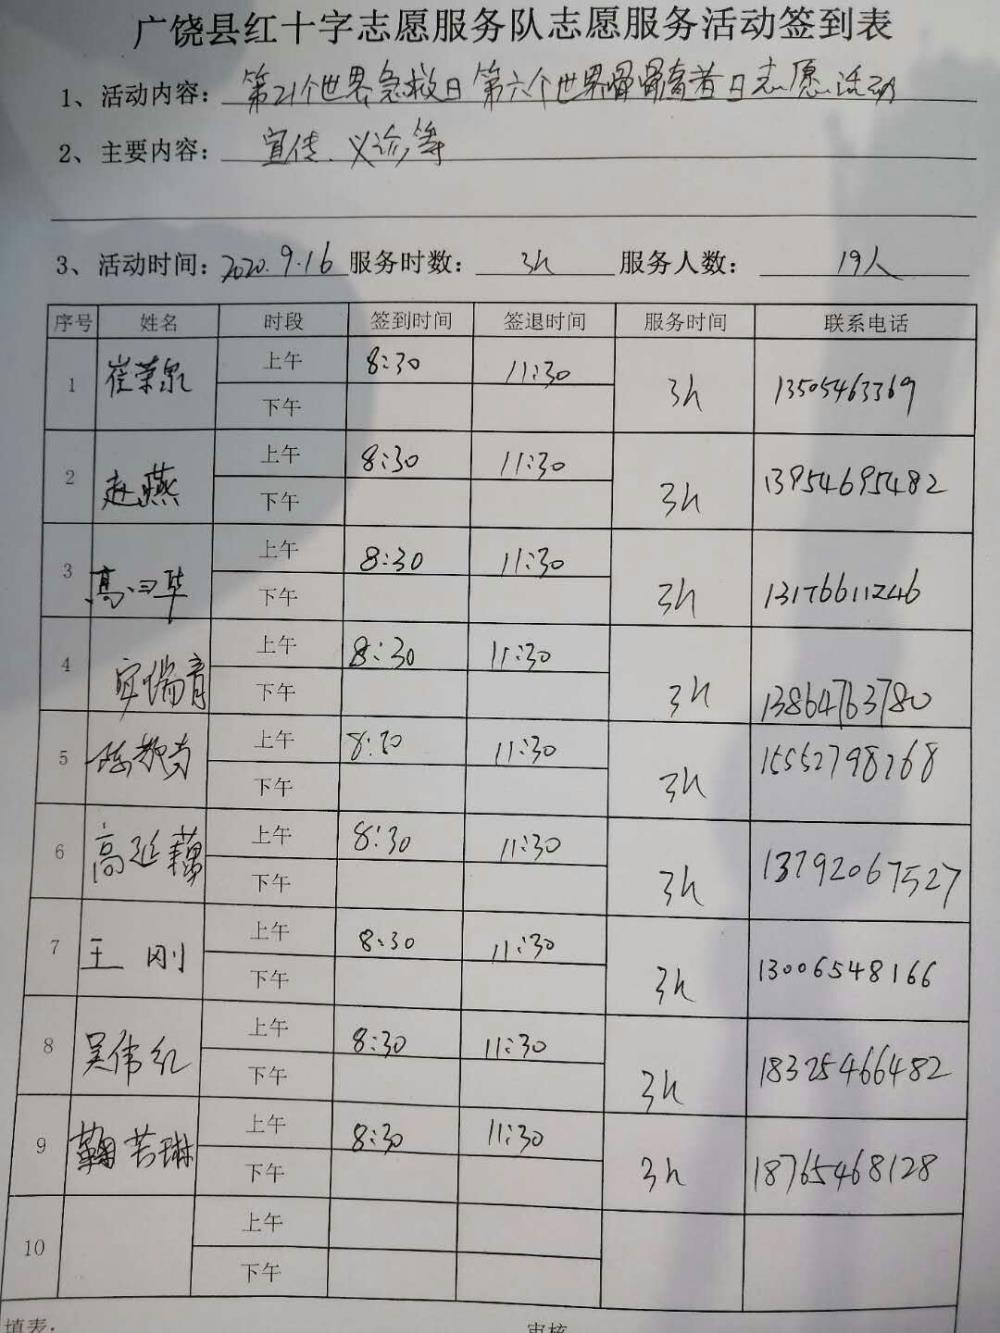 广饶县红十字志愿服务队志愿服务活动签到表
1、活动内容：第21个世界急救日 第六个世界骨骼 日志愿活动
2、主要内容：宣传、义诊等
3、活动时间：2020.9.16 服务时数：3h 服务人数：19人
序号 姓名 时段 签到时间 签退时间 服务时间 联系电话
1 崔荣泉 上午 8:30 11:30 3h 13505463369
下午
2 赵燕 上午 8:30 11:30 3h 13954695482
下午
3 高 华 上午 8:30 11:30 3h 13176611246
下午
4 瑞青 上午 8:30 11:30 3h 13864763780
下午
5 上午 8:30 11:30 3h 15552798268
下午
6 高延藕 上午 8:30 11:30 3h 13792067527
下午
7 王刚 上午 8:30 11:30 3h 13006548166
下午
8 吴伟红 上午 8:30 11:30 3h 18325466482
下午
9 鞠若琳 上午 8:30 11:30 3h 18765468128
下午
10 上午
下午
填表： 审核